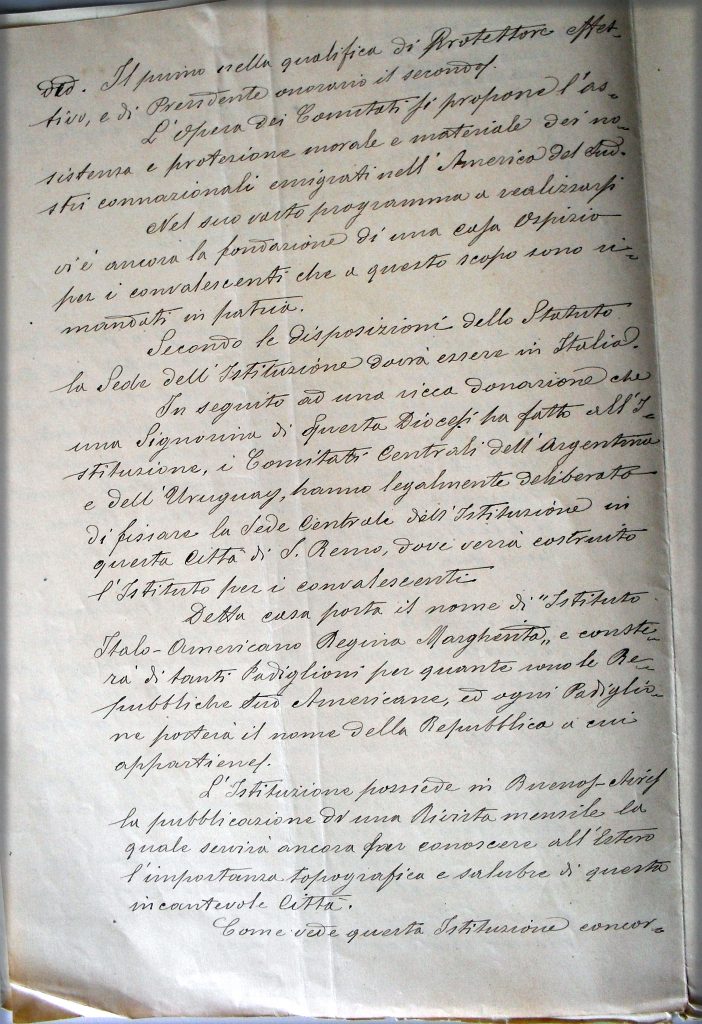 did. Il primo nella qualifica di Protettore effet-
tivo, e di Presidente onorario il secondo.
L'Opera dei Comitati si propone l'as-
sistenza e protezione morale e materiale dei no-
stri connazionali emigrati nell'America del Sud.
Nel suo vasto programma a realizzarsi
vi è ancora la fondazione di una casa Ospizio
per i convalescenti che a questo scopo sono ri-
mandati in patria.
Secondo le disposizioni dello Statuto
la Sede dell'Istituzione dovrà essere in Italia.
In seguito ad una ricca donazione che
una Signorina di questa Diocesi ha fatto all'I-
stituzione, i Comitati Centrali dell'Argentina
e dell'Uruguay, hanno legalmente deliberato
di fissare la Sede Centrale dell'Istituzione in
questa Città di S. Remo, dove verrà costruito
l'Istituto per i convalescenti
Detta casa porta il nome di "Istituto
Italo-Americano Regina Margherita„ e conste-
rà di tanti Padiglioni per quante sono le Re-
pubbliche Sud Americane, ed ogni Padiglio-
ne porterà il nome della Repubblica a cui
appartiene.
L'Istituzione possiede in Buenos-Aires
la pubblicazione di una Rivista mensile la
quale servirà ancora far conoscere all'Estero
l'importanza topografica e salubre di questa
incantevole Città.
Come vede questa Istituzione concor-